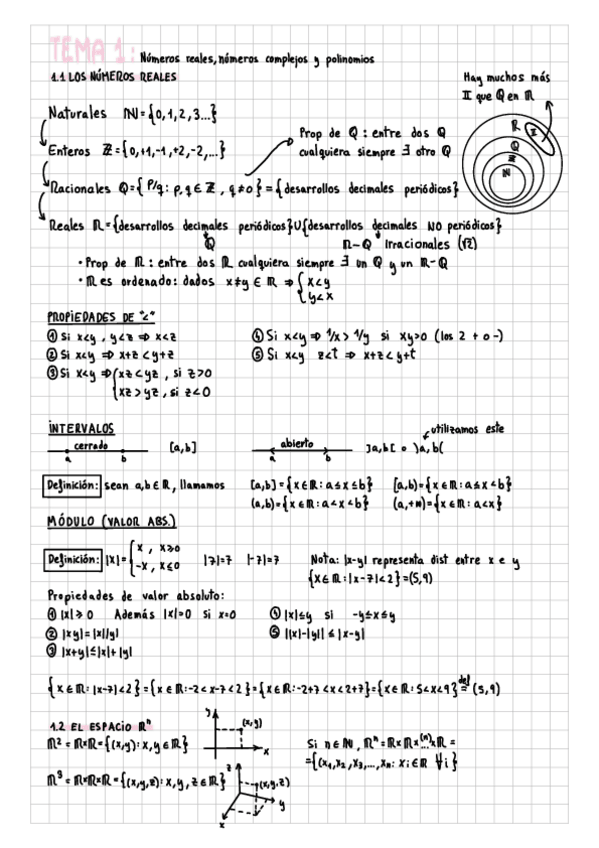 TEMA 1: Números reales, números complejos y polinomios
1.1 LOS NÚMEROS REALES
Hay muchos más
𝕀 que ℚ en ℝ
Naturales ℕ={0,1,2,3...}
Enteros ℤ={0,+1,-1,+2,-2,...}
Prop de ℚ: entre dos ℚ
cualquiera siempre ∃ otro ℚ
ℝ 𝕀
ℚ
ℤ
ℕ
Racionales ℚ={P/q: p,q∈ℤ, q≠0}={desarrollos decimales periódicos}
Reales ℝ={desarrollos decimales periódicos}∪{desarrollos decimales NO periódicos}
ℚ ℝ~ℚ Irracionales (√2)
· Prop de ℝ: entre dos ℝ cualquiera siempre ∃ un ℚ y un ℝ-ℚ
· ℝ es ordenado: dados x≠y∈ℝ ⇒ { x<y
y<x
PROPIEDADES DE "<"
① Si x<y, y<z ⇒ x<z
④ Si x<y ⇒ 1/x > 1/y si xy>0 (los 2 + o -)
② Si x<y ⇒ x+z<y+z
⑤ Si x<y z<t ⇒ x+z<y+t
③ Si x<y ⇒ { xz<yz, si z>0
xz>yz, si z<0
INTERVALOS
utilizamos este
cerrado a b [a,b]
abierto a b ]a,b[ o )a,b(
Definición: sean a,b∈ℝ, llamamos [a,b]={x∈ℝ: a≤x≤b} [a,b)={x∈ℝ: a≤x<b}
(a,b)={x∈ℝ: a<x<b} (a,+∞)={x∈ℝ: a<x}
MÓDULO (VALOR ABS.)
Definición: |x|={ x, x≥0
-x, x≤0
|7|=7 |-7|=7
Nota: |x-y| representa dist entre x e y
{x∈ℝ: |x-7|<2}=(5,9)
Propiedades de valor absoluto:
① |x|≥0 Además |x|=0 si x=0
④ |x|≤y si -y≤x≤y
② |xy|=|x||y|
⑤ ||x|-|y|| ≤ |x-y|
③ |x+y|≤|x|+|y|
{x∈ℝ: |x-7|<2}={x∈ℝ: -2<x-7<2}={x∈ℝ: -2+7<x<2+7}={x∈ℝ: 5<x<9} =def (5,9)
1.2 EL ESPACIO ℝⁿ
y (x,y) x
ℝ²=ℝ×ℝ={(x,y): x,y∈ℝ}
Si n∈ℕ, ℝⁿ=ℝ×ℝ×...⁽ⁿ⁾×ℝ=
={(x₁,x₂,x₃,...,xₙ: xᵢ∈ℝ ∀i}
ℝ³=ℝ×ℝ×ℝ={(x,y,z): x,y,z∈ℝ}
z (x,y,z) y x